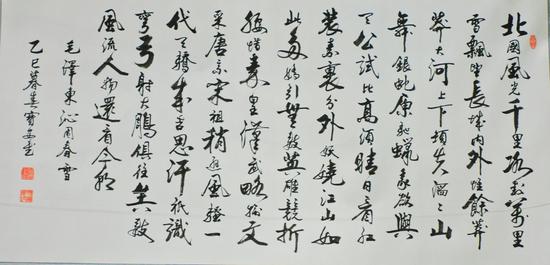 北國風光千里冰封萬里
雪飄望長城內外惟餘莽
莽大河上下頓失滔〻山
舞銀蛇原馳蠟象欲與
天公試比高須晴日看紅
裝素裹分外妖嬈江山如
此多嬌引無數英雄競折
腰惜秦皇漢武略輸文
采唐宗宋祖稍遜風騷一
代天驕成吉思汗祇識
彎弓射大鵰俱往矣數
風流人物還看今朝
毛澤東沁園春雪
乙巳暮春寶